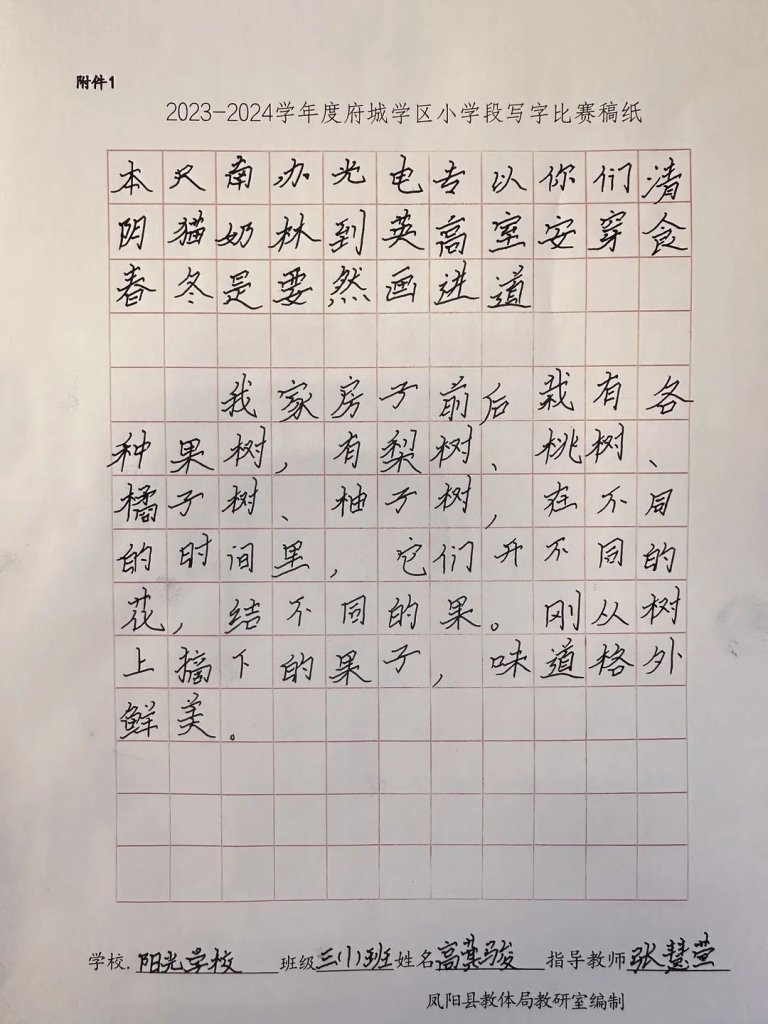 附件1
2023-2024学年度府城学区小学段写字比赛稿纸
本尺南办光电专以你们清
阴猫奶林到英高室安穿食
春冬是要然画进道
我家房子前后栽有各
种果树，有梨树、桃树、
橘子树、柚子树，在不同
的时间里，它们开不同的
花，结不同的果。刚从树
上摘下的果子，味道格外
鲜美。
学校.阳光学校 班级三(1)班姓名高蓂骏 指导教师张慧萱
凤阳县教体局教研室编制